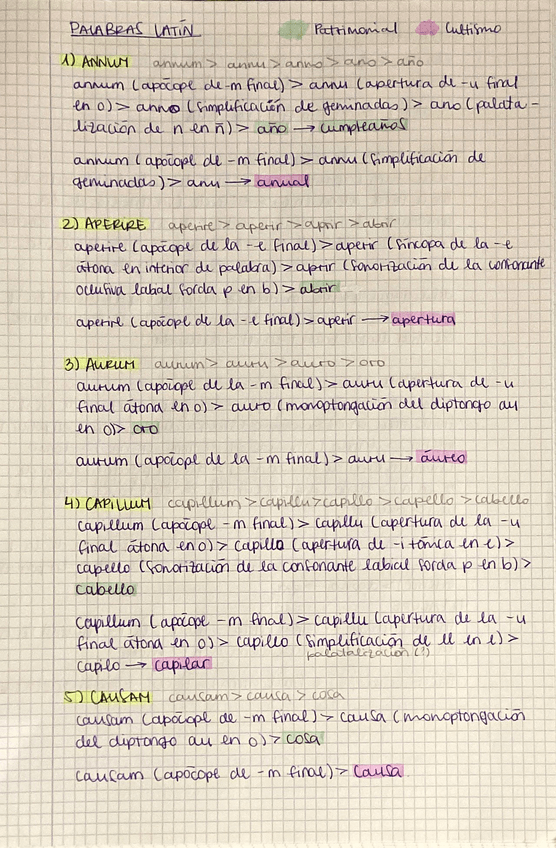 PALABRAS LATÍN Patrimonial Cultismo
1) ANNUM annum > annu > anno > ano > año
annum (apócope de -m final) > annu (apertura de -u final
en o) > anno (simplificación de geminadas) > ano (palata-
lización de n en ñ) > año → cumpleaños
annum (apócope de -m final) > annu (simplificación de
geminadas) > anu → anual
2) APERIRE aperire > aperir > aprir > abrir
aperire (apócope de la -e final) > aperir (síncopa de la -e
átona en interior de palabra) > aprir (sonorización de la consonante
oclusiva labial sorda p en b) > abrir
aperire (apócope de la -e final) > aperir → apertura
3) AURUM aurum > auru > auro > oro
aurum (apócope de la -m final) > auru (apertura de -u
final átona en o) > auro (monoptongación del diptongo au
en o) > oro
aurum (apócope de la -m final) > auru → áureo
4) CAPILLUM capillum > capillu > capillo > capello > cabello
capillum (apócope -m final) > capillu (apertura de la -u
final átona en o) > capillo (apertura de -i tónica en e) >
capello (sonorización de la consonante labial sorda p en b) >
cabello
capillum (apócope -m final) > capillu (apertura de la -u
final átona en o) > capillo (simplificación de ll en l) >
palatalización (?)
capilo → capilar
5) CAUSAM causam > causa > cosa
causam (apócope de -m final) > causa (monoptongación
del diptongo au en o) > cosa
causam (apócope de -m final) > causa.